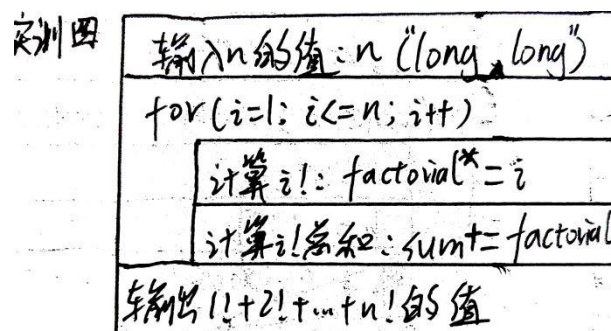 实训图
输入n的值:n ("long long")
for(i=1; i<=n; i++)
计算i!: factorial*=i
计算i!总和:sum+=factorial
输出1!+2!+...+n!的值